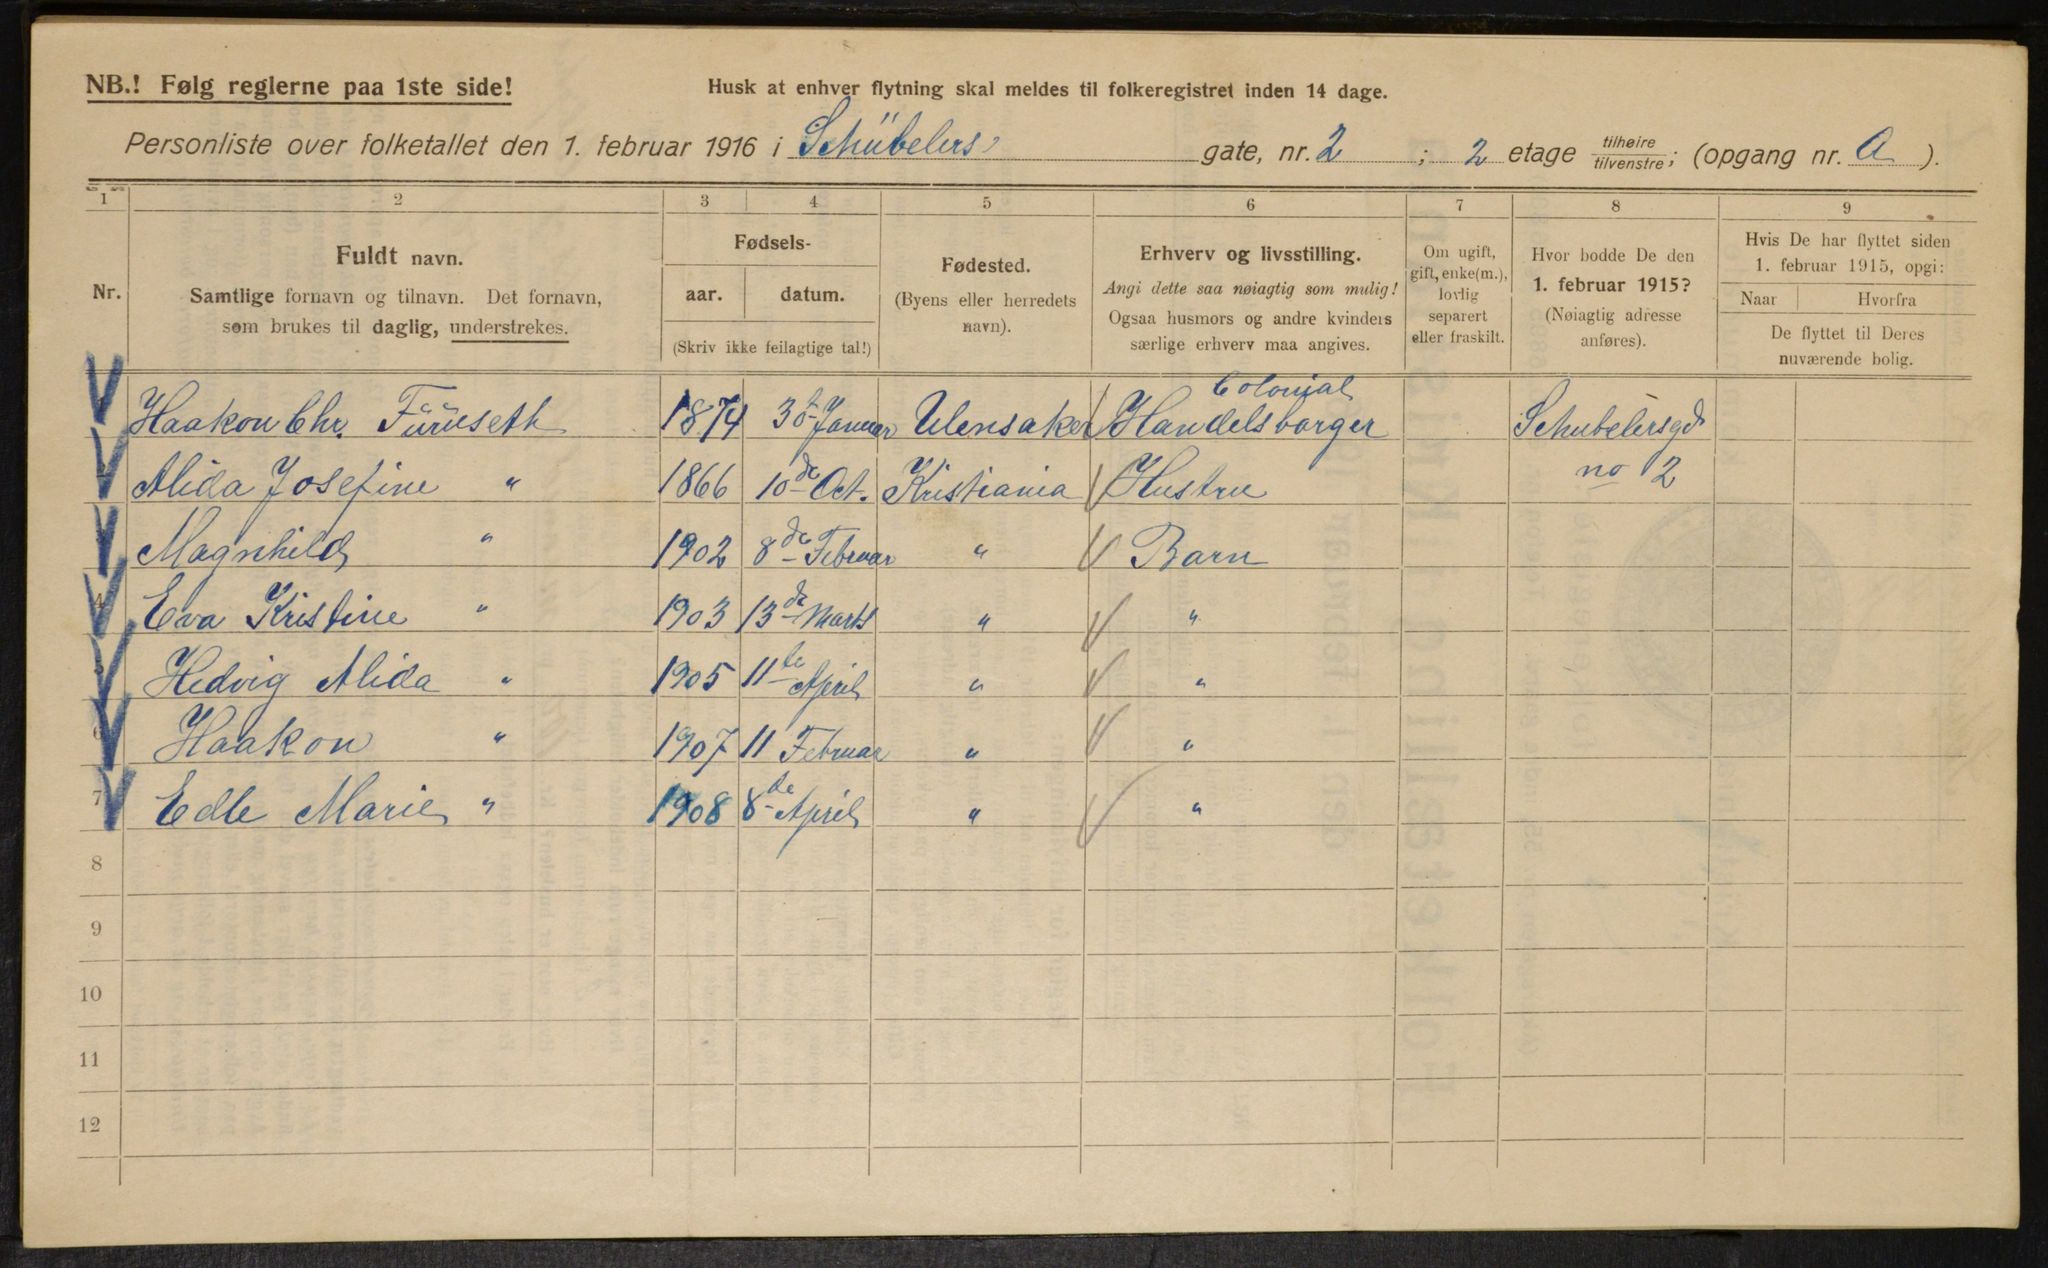 NB.! Følg reglerne paa 1ste side!
Husk at enhver flytning skal meldes til folkeregistret inden 14 dage.
Personliste over folketallet den 1. februar 1916 i Schübelers gate, nr. 2 ; 2 etage tilhøire/tilvenstre; (opgang nr. A ).
1 2 3 4 5 6 7 8 9
Nr.
Fuldt navn.
Samtlige fornavn og tilnavn. Det fornavn,
som brukes til daglig, understrekes.
Fødsels-
aar. datum.
(Skriv ikke feilagtige tal!)
Fødested.
(Byens eller herredets
navn).
Erhverv og livsstilling.
Angi dette saa nøiagtig som mulig!
Ogsaa husmors og andre kvinders
særlige erhverv maa angives.
Om ugift,
gift, enke(m.),
lovlig
separert
eller fraskilt.
Hvor bodde De den
1. februar 1915?
(Nøiagtig adresse
anføres).
Hvis De har flyttet siden
1. februar 1915, opgi:
Naar Hvorfra
De flyttet til Deres
nuværende bolig.
Colonial
Haakon Chr. Füruseth 1874 30t Januar Ulensaker Handelsborger Schubelersgd
Alida Josefine " 1866 10de Oct. Kristiania Hustru no 2
Magnhild " 1902 8de Februar " Barn
4 Eva Kristine " 1903 13de Marts " "
5 Hedvig Alida " 1905 11te April " "
6 Haakon " 1907 11 Februar " "
7 Edle Marie " 1908 8de April " "
8
9
10
11
12